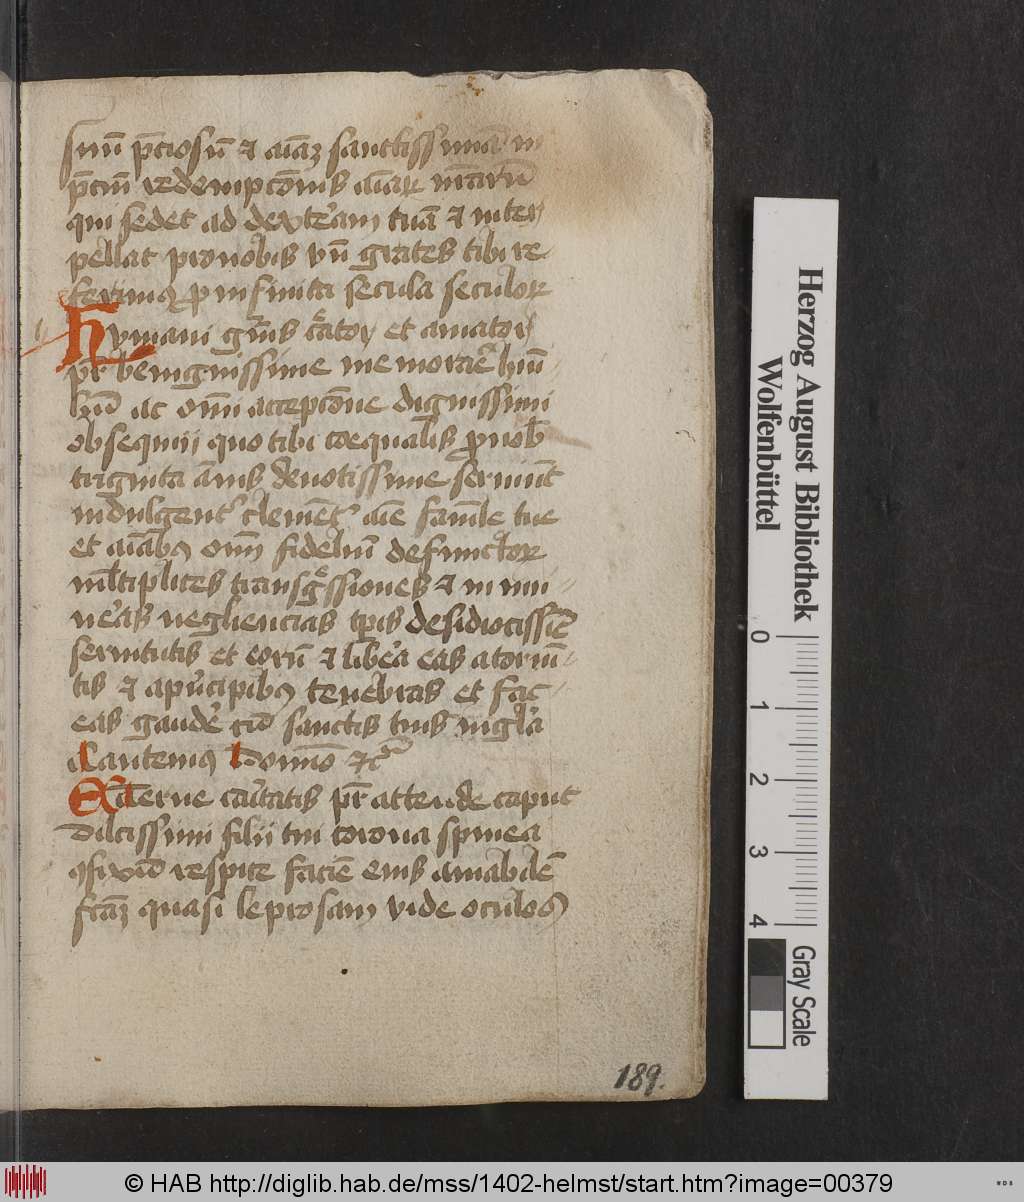 suū p̄ciosū ⁊ aīaꝫ sanctissimā in
p̄ciū redempcōnis aīaꝝ nr̄arū
qui sedet ad dexteram tuā ⁊ inter
pellat pro nobis vn̄ grates tibi re-
ferimꝰ ꝑ infinita secula seculoꝝ
Hvmani gn̄is c̄ator et amator
pr̄ benignissime memorare
ac om̄i acceptōne dignissimi
obsequii quo tibi coequalis ꝓ nob̄
triginta annis deuotissime seruiuit
indulgent clement aīe famule tue
et aīabꝰ om̄ fideliū defunctoꝝ
ml̄tiplices transgressiones ⁊ in mu-
neras negliencias tꝑis desidiocissie
seruitutis et eorū ⁊ libera eas a toruen-
tis ⁊ a principibꝰ tenebras et fac-
eas gaudere cū sanctis tuis in glīa
Cantemꝰ Domino ⁊c̄
Eterne caritatis pr̄ attende caput
dulcissimi filii tui corona spinea
ꝯfixū respice faciē eius amabilē
fc̄aꝫ quasi leprosam vide oculos
189.
Herzog August Bibliothek
Wolfenbüttel
0 1 2 3 4
Gray Scale
© HAB http://diglib.hab.de/mss/1402-helmst/start.htm?image=00379